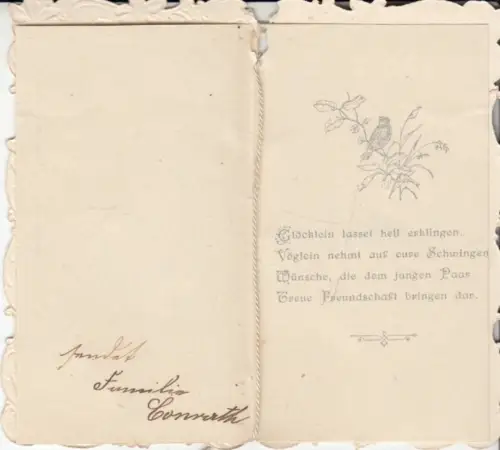 sendet
Familie
Conrath
Glöcklein lasset hell erklingen,
Vöglein nehmt auf eure Schwingen
Wünsche, die dem jungen Paar
Treue Freundschaft bringen dar.